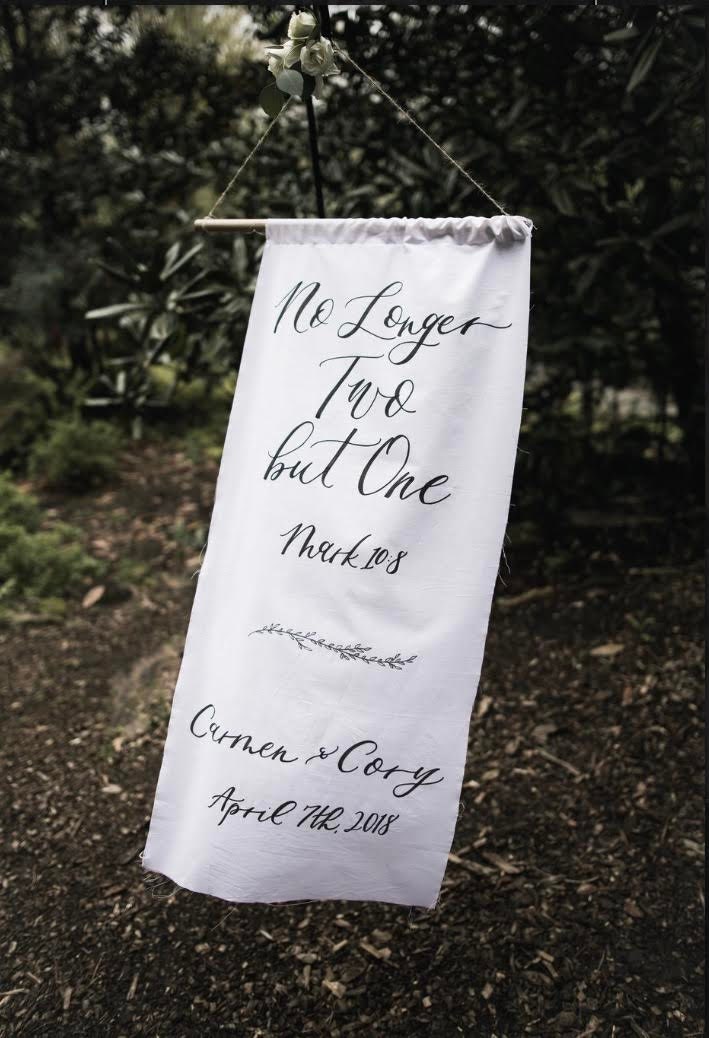 No Longer
Two
but One
Mark 10:8
Carmen & Cory
April 7th, 2018